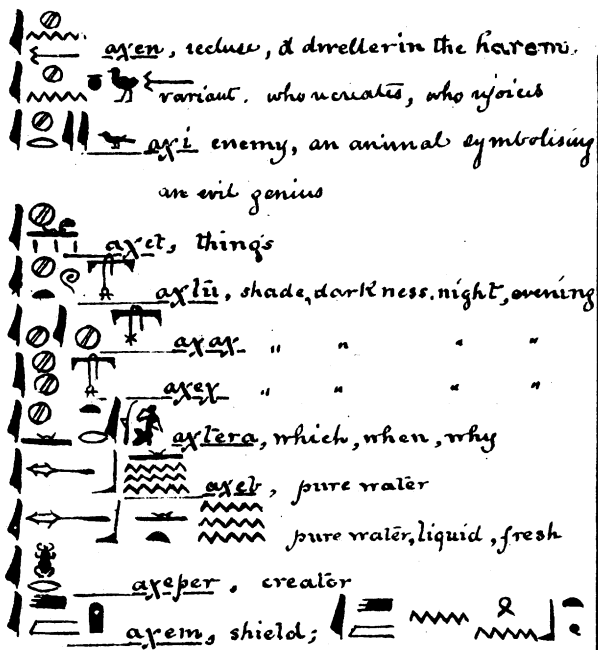 axen, recluse, a dweller in the harem.
variant. who recreates, who rejoices
axi enemy, an animal symbolising
an evil genius
axet, things
axtū, shade, darkness, night, evening
axax „ „ „ „
axex „ „ „ „
axtera, which, when, why
axeb, pure water
pure water, liquid, fresh
axeper, creator
axem, shield;